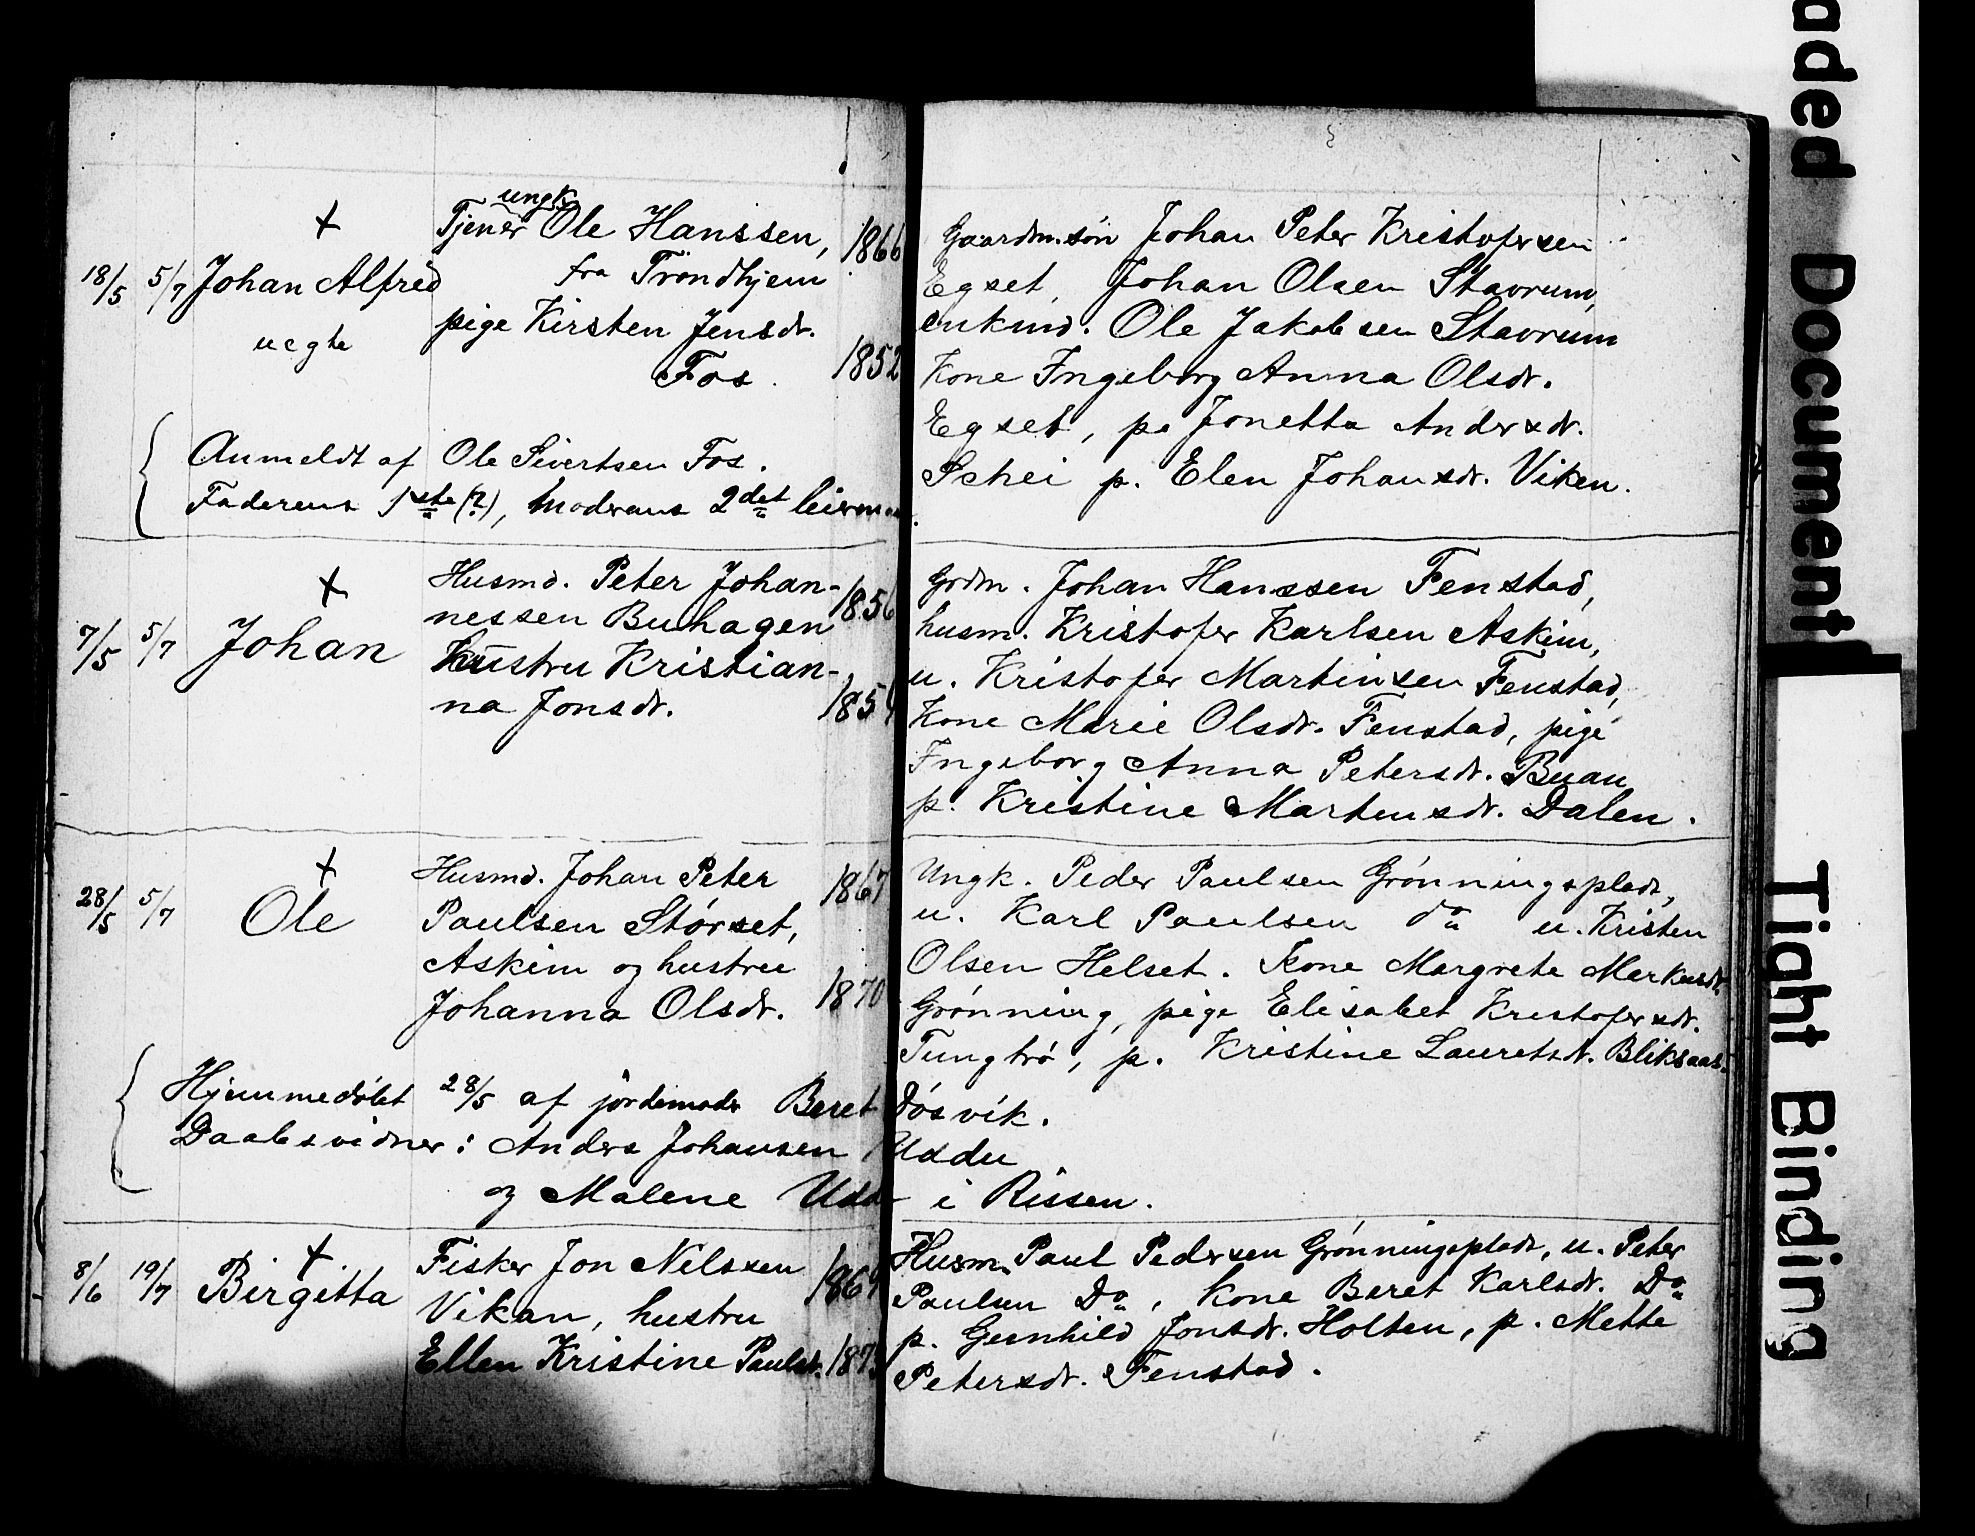 ungk.
✝ Tjener Ole Hanssen, 1866
18/5 5/7 Johan Alfred fra Trondhjem
uegte pige Kirsten Jensdr.
Fos. 1852
Anmeldt af Ole Sivertsen Fos.
Faderens 1ste (?), Moderens 2det leierm
Gaardm.søn Johan Peter Kristofersen
Egset, Johan Olsen Stavrum,
enkmd. Ole Jakobsen Stavrum
Kone Ingeborg Anna Olsdr.
Egset, pe Jonetta Andersdr.
Schei p. Elen Johansdr. Viken.
✝ Husmd. Peter Johan- 1856
7/5 5/7 Johan nessen Buhagen
hustru Kristian-
na Jonsdr. 185
Grdm. Johan Hanssen Fenstad,
husm. Kristofer Karlsen Askim,
u. Kristofer Martinsen Fenstad,
Kone Marie Olsdr. Fenstad, pige
Ingeborg Anna Petersdr. Buan
p. Kristine Martensdr. Dalen.
✝ Husmd. Johan Peter 1867
28/5 5/7 Ole Paulsen Størset,
Askim og hustru
Johanna Olsdr. 1870
Ungk. Peder Paulsen Grønningsplads,
u. Karl Paulsen do u. Kristen
Olsen Helset. Kone Margrete Markusdr.
Grønning, pige Elisabet Kristofersdr.
Tungtrø, p. Kristine Lauretsdr. Bliksaas.
Hjemmedøbt 28/5 af jordemoder Beret Døsvik.
Daabsvidner: Anders Johansen Uddu
og Malene Uddu i Rissen.
8/6 19/7 ✝ Birgitta Fisker Jon Nilssen 1869
Vikan, hustru
Ellen Kristine Paulsdr. 187
Husm. Paul Pedersen Grønningsplads, u. Peter
Paulsen Do, kone Beret Karlsdr. Do
p. Gunhild Jonsdr. Holten, p. Mette
Petersdr. Fenstad.
aded Document
Tight Binding